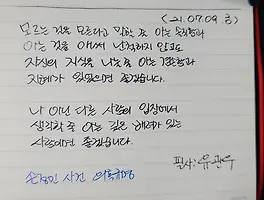 (21.07.09 금)
모르는 것을 모르다고 말할 줄 아는 솔직함과
아는 것을 애써 난척하지 않고도
자신의 지식을 나눌 줄 아는 겸손함과
지혜가 있었으면 좋겠습니다.
나 아닌 다른 사람의 입장에서
생각할 줄 아는 깊은 배려가 있는
사람이면 좋겠습니다.
필사: 유관우
사진